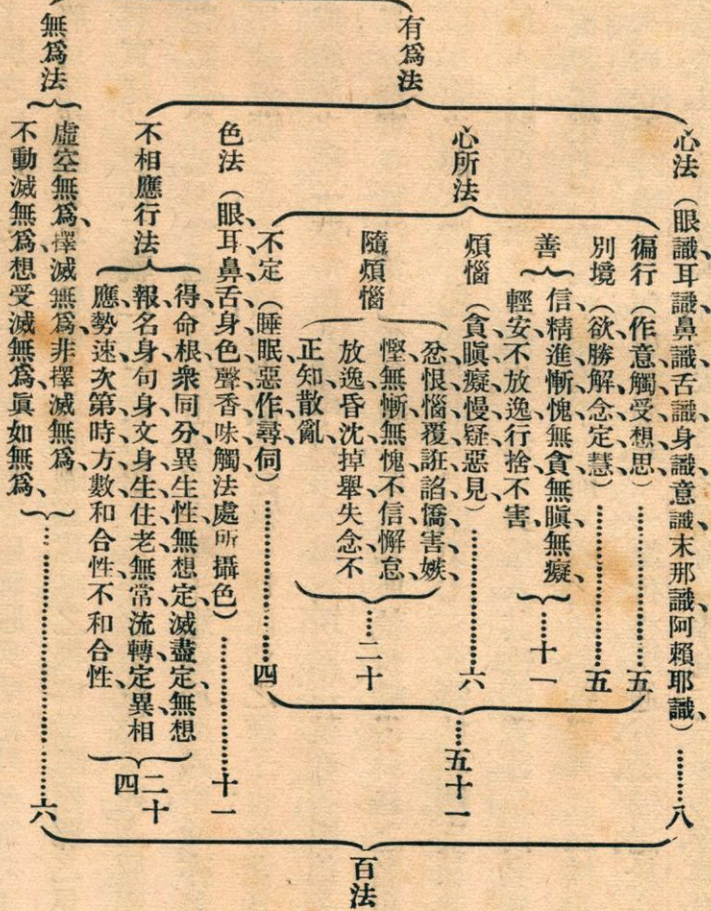 有爲法
心法（眼識、耳識、鼻識、舌識、身識、意識、末那識、阿賴耶識、）………八
心所法
徧行（作意、觸、受、想、思、）………五
別境（欲、勝解、念、定、慧、）………五
善
信、精進、慚、愧、無貪、無瞋、無癡、
輕安、不放逸、行捨、不害、
……十一
煩惱（貪、瞋、癡、慢、疑、惡見、）………六
隨煩惱
忿、恨、惱、覆、誑、諂、憍、害、嫉、
慳、無慚、無愧、不信、懈怠、
放逸、昏沈、掉擧、失念、不
正知、散亂、
……二十
不定（睡眠、惡作、尋、伺、）………四
……五十一
色法（眼、耳、鼻、舌、身、色、聲、香、味、觸、法處所攝色）………十一
不相應行法
得、命根、衆同分、異生性、無想定、滅盡定、無想
報、名身、句身、文身、生、住、老、無常、流轉、定異、相
應、勢速、次第、時、方、數、和合性、不和合性、
二十
四
無爲法
虛空無爲、擇滅無爲、非擇滅無爲、
不動滅無爲、想受滅無爲、眞如無爲、
………六
百法